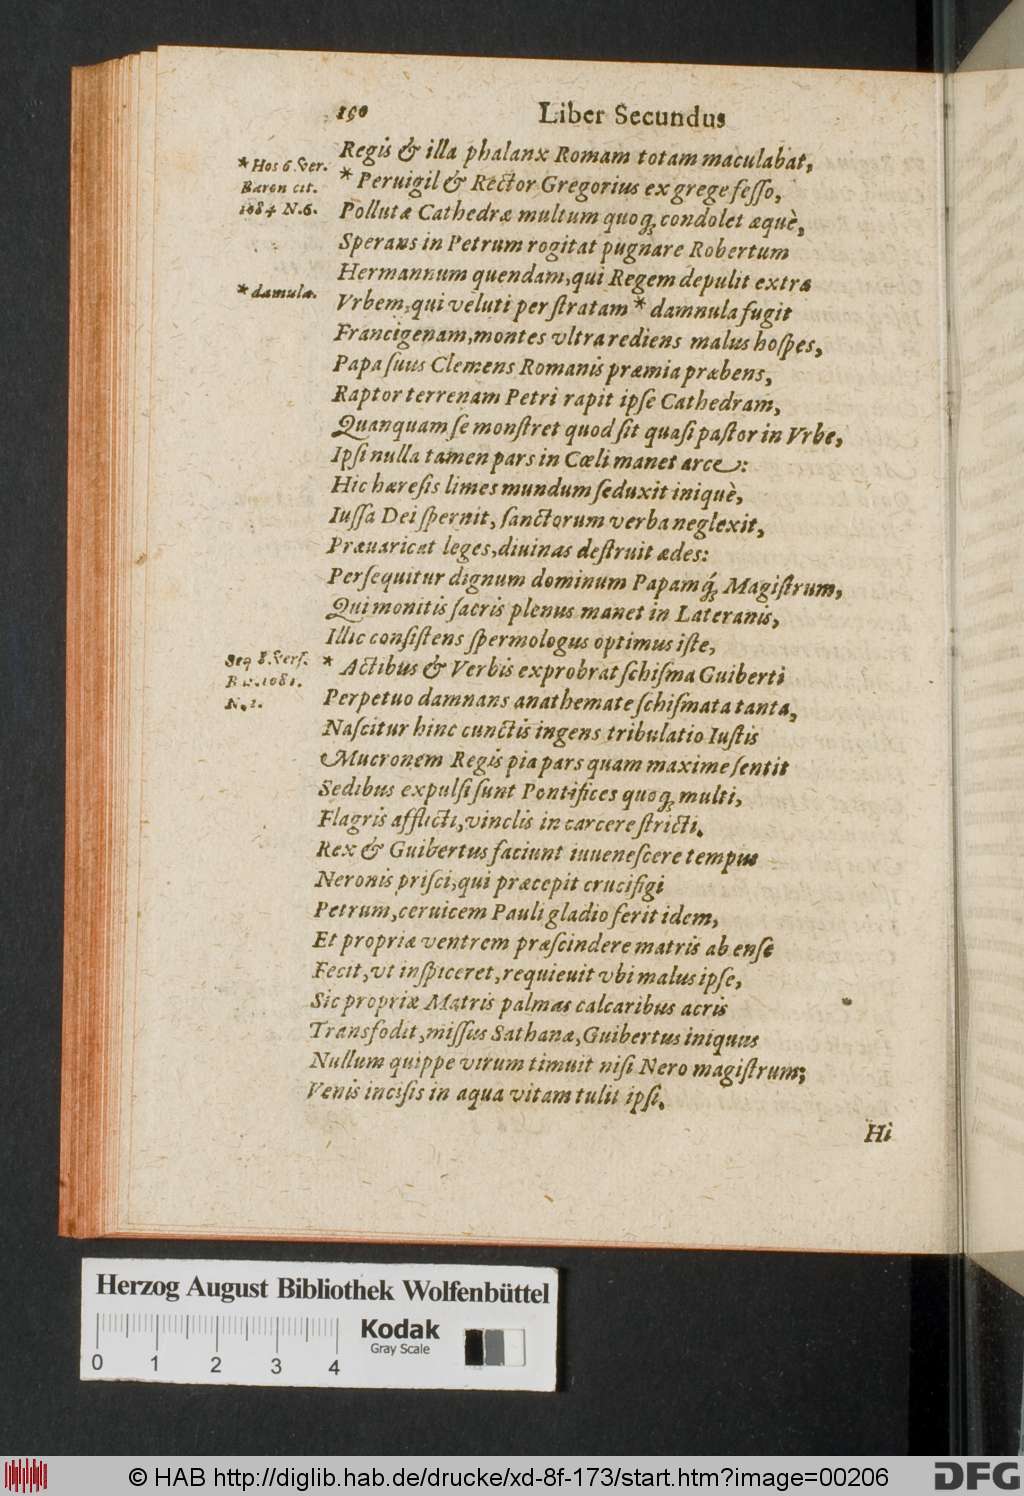 190 Liber Secundus
Regis & illa phalanx Romam totam maculabat,
* Hos 6. Ver.
Baron cit.
1084 N. 6.
* Peruigil & Rector Gregorius ex grege fesso,
Pollutæ Cathedræ multum quoq; condolet æquè,
Sperans in Petrum rogitat pugnare Robertum
Hermannum quendam, qui Regem depulit extra
* damulæ.
Vrbem, qui veluti per stratam * damnula fugit
Francigenam, montes vltra rediens malus hospes,
Papa suus Clemens Romanis præmia præbens,
Raptor terrenam Petri rapit ipse Cathedram,
Quanquam se monstret quod sit quasi pastor in Vrbe,
Ipsi nulla tamen pars in Cœli manet arce:
Hic hæresis limes mundum seduxit iniquè,
Iussa Dei spernit, sanctorum verba neglexit,
Præuaricat leges, diuinas destruit ædes:
Persequitur dignum dominum Papamq́; Magistrum,
Qui monitis sacris plenus manet in Lateranis,
Illic consistens spermologus optimus iste,
Seq 8. Vers.
1081.
N. 1.
* Actibus & Verbis exprobrat schisma Guiberti
Perpetuo damnans anathemate schismata tanta,
Nascitur hinc cunctis ingens tribulatio Iustis
Mucronem Regis pia pars quam maxime sentit
Sedibus expulsi sunt Pontifices quoq; multi,
Flagris afflicti, vinclis in carcere stricti.
Rex & Guibertus faciunt iuuenescere tempus
Neronis prisci, qui præcepit crucifigi
Petrum, ceruicem Pauli gladio ferit idem,
Et propriæ ventrem præscindere matris ab ense
Fecit, vt inspiceret, requieuit vbi malus ipse,
Sic propriæ Matris palmas calcaribus acris
Transfodit, missus Sathanæ, Guibertus iniquus
Nullum quippe virum timuit nisi Nero magistrum;
Venis incisis in aqua vitam tulit ipsi.
Hi
Herzog August Bibliothek Wolfenbüttel
0 1 2 3 4
Kodak
Gray Scale
© HAB http://diglib.hab.de/drucke/xd-8f-173/start.htm?image=00206
DFG